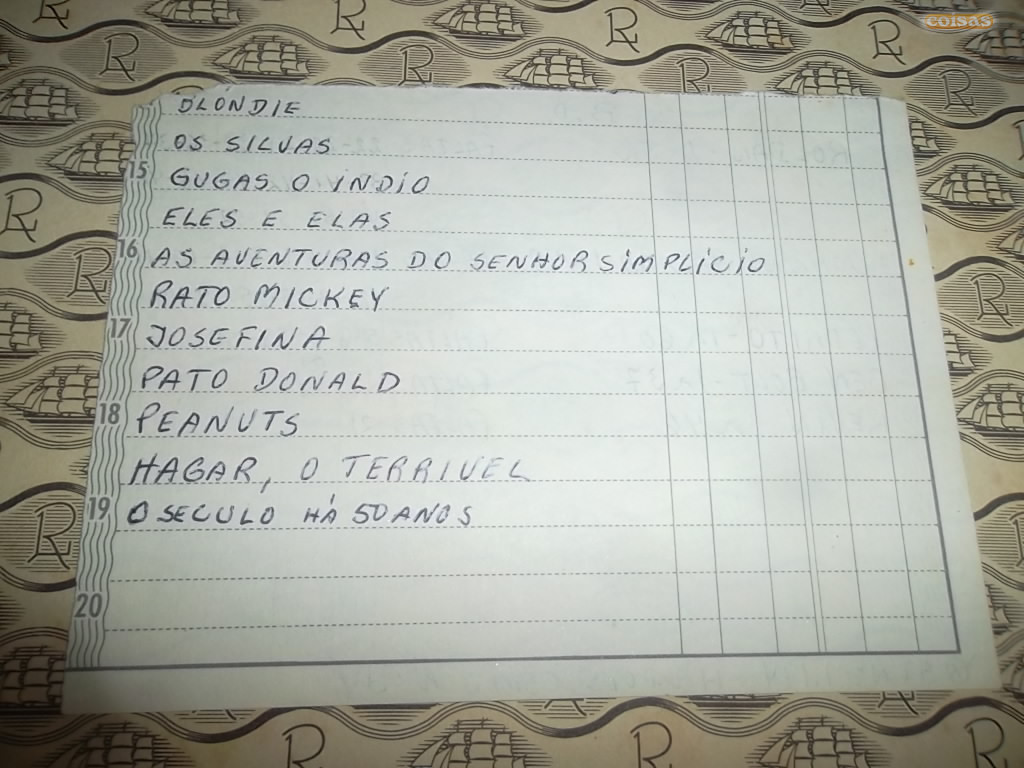 coisas
DLONDIE
OS SILVAS
15
GUGAS O INDIO
ELES E ELAS
16
AS AVENTURAS DO SENHOR SIMPLICIO
RATO MICKEY
17
JOSEFINA
PATO DONALD
18
PEANUTS
HAGAR, O TERRIVEL
19
O SECULO HÁ 50 ANOS
20